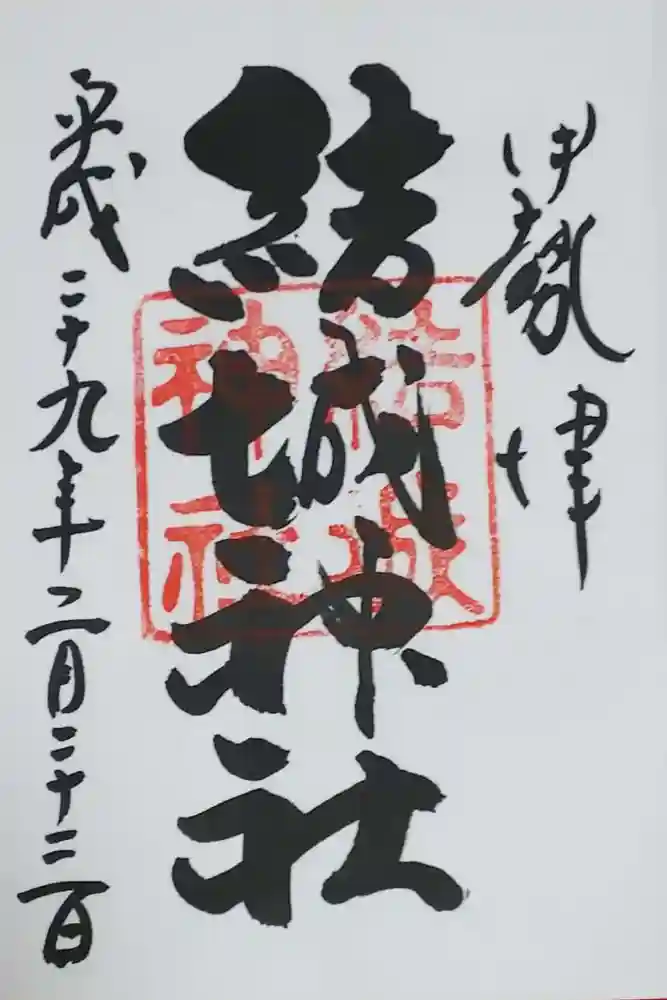 伊勢津
結城神社
結城
神社
平成二十九年二月二十二日